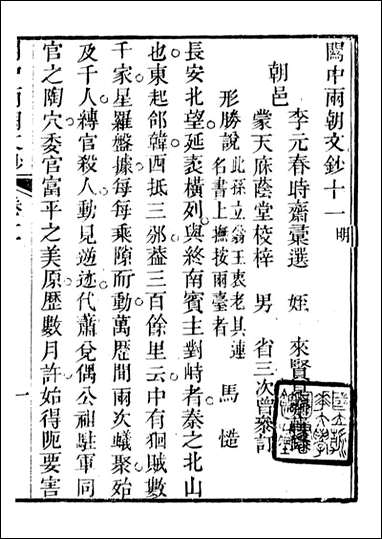 關中兩朝文鈔十一 明
李元春時齋彙選 姪 來賢
朝邑
蒙天庥蔭堂校梓 男 省三次曾泰訂
形勝說 此孫立翁王衷老具連名書上撫按兩臺者 馬慥
長安北望延袤橫列與終南賓主對峙者秦之北山
也東起郃韓西抵三邠葢三百餘里云中有狪賊數
千家星羅盤據每每乘隙而動萬歴間兩次蟻聚始
及千人縛官殺人動見遊迹代蕭㕙偶公祖駐軍同
官之陶穴委官富平之美原歴數月許始得扼要害